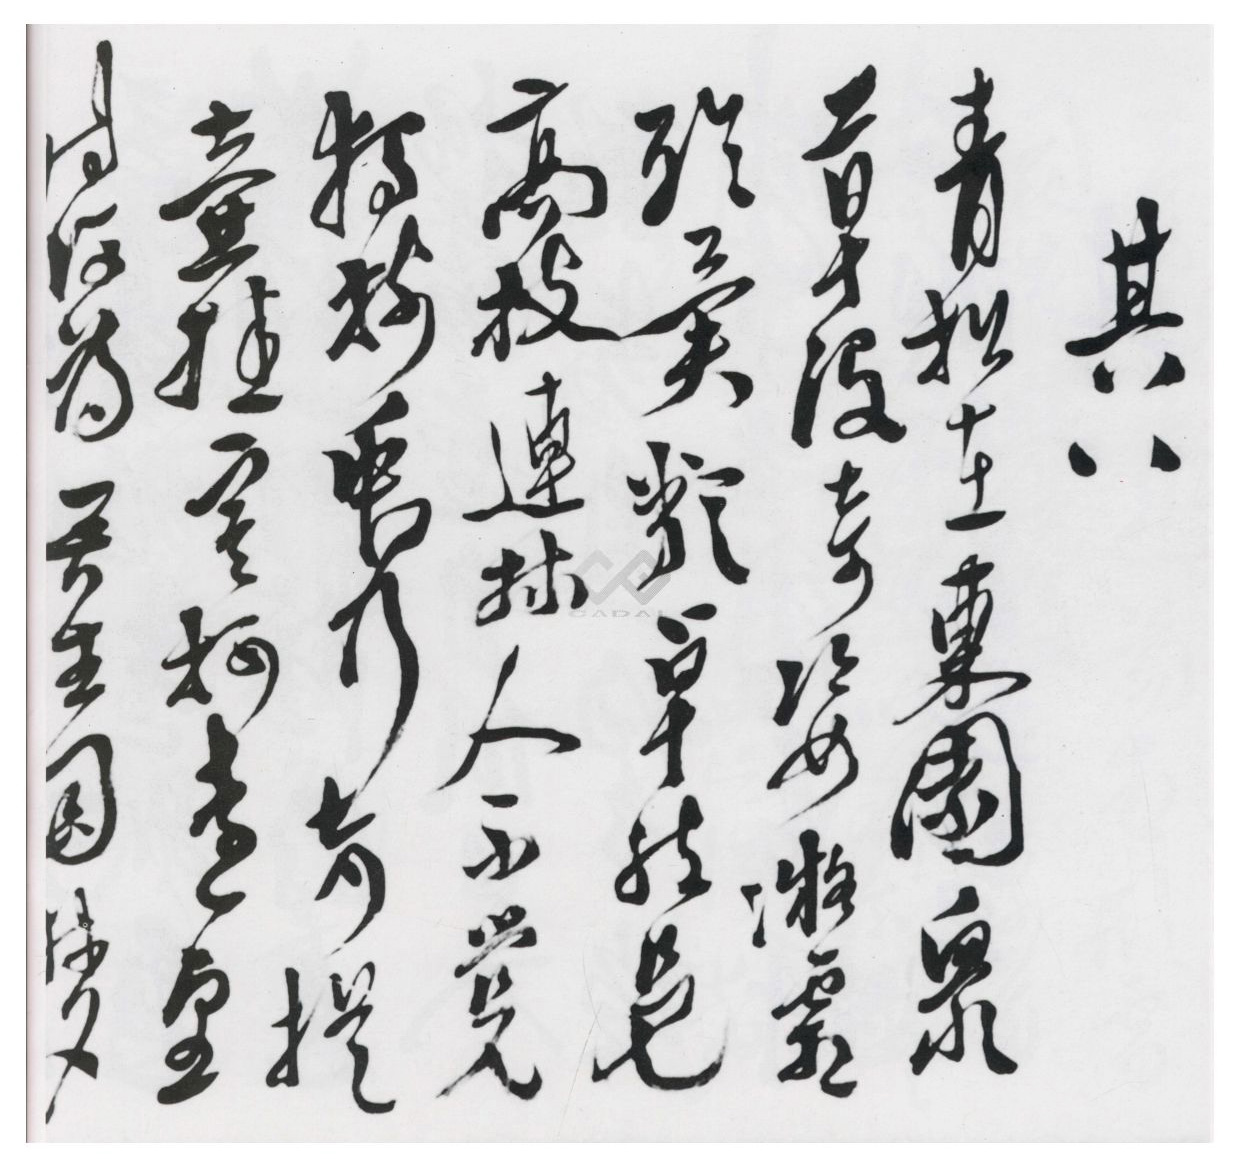 其八
青松在東園衆
草沒奇姿凝霜
殄異類卓然見
高枝連林人不覺
獨樹衆乃奇提
壺挂寒柯遠望
時復為吾生
CADAL